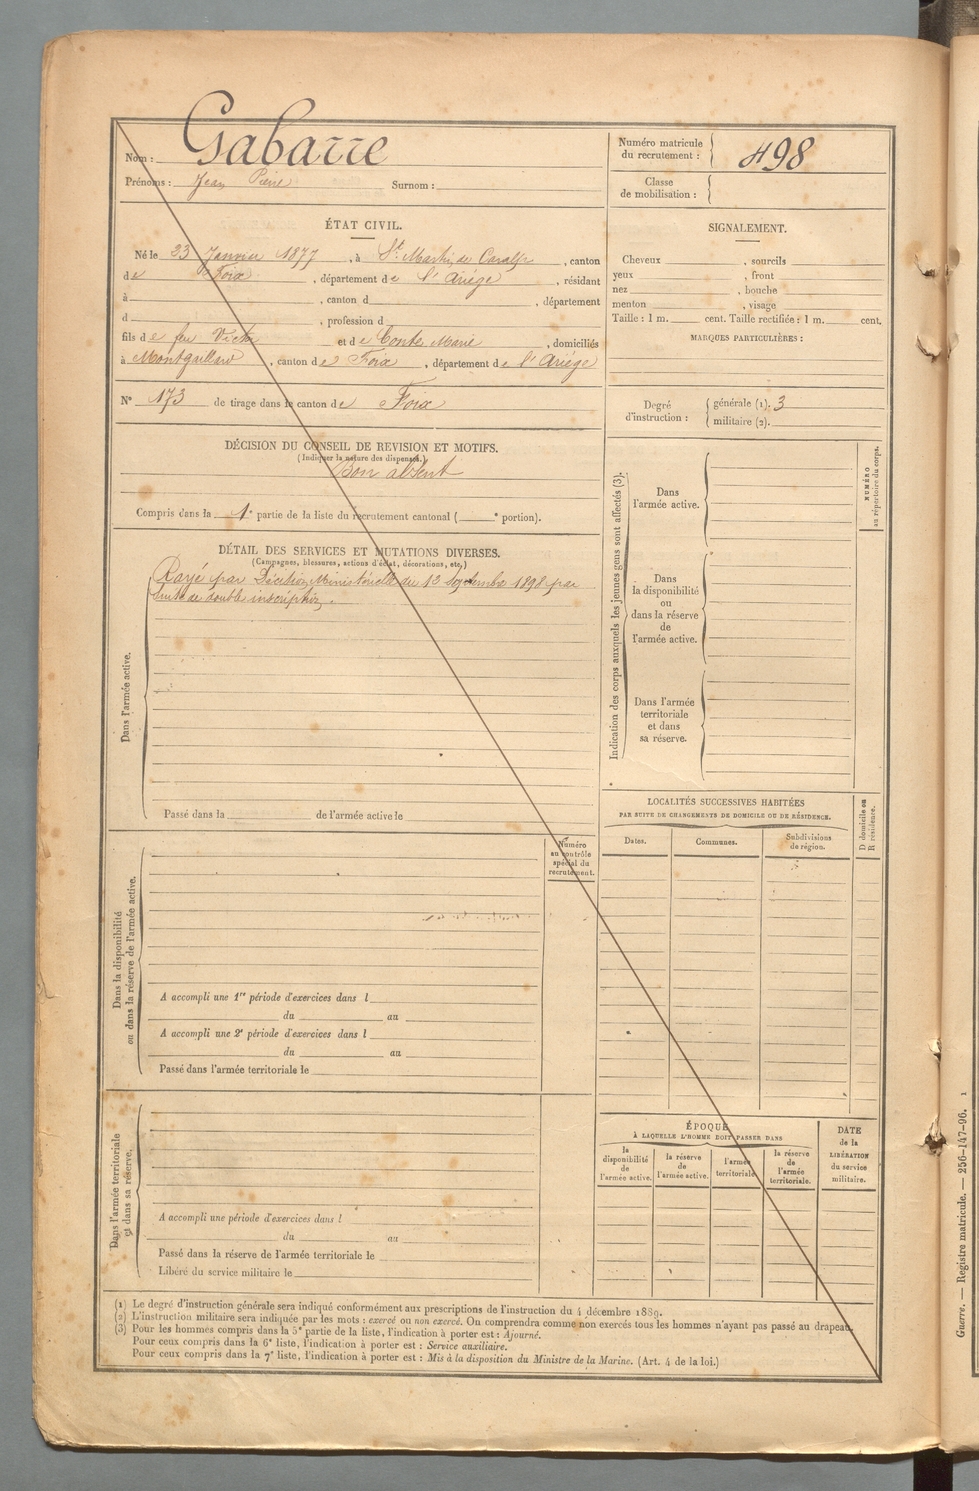 Nom : Gabarre
Prénoms : Jean Pierre Surnom :
Numéro matricule du recrutement : 498
Classe de mobilisation :
ÉTAT CIVIL.
Né le 23 Janvier 1877, à St Martin de Caralp, canton
de Foix, département de l'Ariège, résidant
à , canton d , département
d , profession d
fils de feu Victor et de Conte Marie, domiciliés
à Montgaillard, canton de Foix, département de l'Ariège
N° 173 de tirage dans le canton de Foix
SIGNALEMENT.
Cheveux , sourcils
yeux , front
nez , bouche
menton , visage
Taille : 1 m. cent. Taille rectifiée : 1 m. cent.
MARQUES PARTICULIÈRES :
Degré d'instruction : générale (1). 3
militaire (2).
DÉCISION DU CONSEIL DE REVISION ET MOTIFS.
(Indiquer la nature des dispenses.)
Bon absent
Compris dans la 1e partie de la liste du recrutement cantonal ( e portion).
DÉTAIL DES SERVICES ET MUTATIONS DIVERSES.
(Campagnes, blessures, actions d'éclat, décorations, etc.)
Rayé par Décision Ministérielle du 13 Septembre 1898 par
suite de double inscription.
Dans l'armée active.
Passé dans la de l'armée active le
Indication des corps auxquels les jeunes gens sont affectés (3).
Dans
l'armée active.
Dans
la disponibilité
ou
dans la réserve
de
l'armée active.
Dans l'armée
territoriale
et dans
sa réserve.
NUMÉRO
au répertoire du corps.
LOCALITÉS SUCCESSIVES HABITÉES
PAR SUITE DE CHANGEMENTS DE DOMICILE OU DE RÉSIDENCE.
Dates. Communes. Subdivisions de région.
D domicile ou
R résidence.
Numéro
au contrôle
spécial du
recrutement.
Dans la disponibilité
ou dans la réserve de l'armée active.
A accompli une 1re période d'exercices dans l
du au
A accompli une 2e période d'exercices dans l
du au
Passé dans l'armée territoriale le
Dans l'armée territoriale
et dans sa réserve.
A accompli une période d'exercices dans l
du au
Passé dans la réserve de l'armée territoriale le
Libéré du service militaire le
ÉPOQUE
À LAQUELLE L'HOMME DOIT PASSER DANS
la disponibilité de l'armée active.
la réserve de l'armée active.
l'armée territoriale.
la réserve de l'armée territoriale.
DATE
de la
LIBÉRATION
du service
militaire.
(1) Le degré d'instruction générale sera indiqué conformément aux prescriptions de l'instruction du 4 décembre 1889.
(2) L'instruction militaire sera indiquée par les mots : exercé ou non exercé. On comprendra comme non exercés tous les hommes n'ayant pas passé au drapeau.
(3) Pour les hommes compris dans la 5e partie de la liste, l'indication à porter est : Ajourné.
Pour ceux compris dans la 6e liste, l'indication à porter est : Service auxiliaire.
Pour ceux compris dans la 7e liste, l'indication à porter est : Mis à la disposition du Ministre de la Marine. (Art. 4 de la loi.)
Guerre. — Registre matricule. — 256-147-96. 1